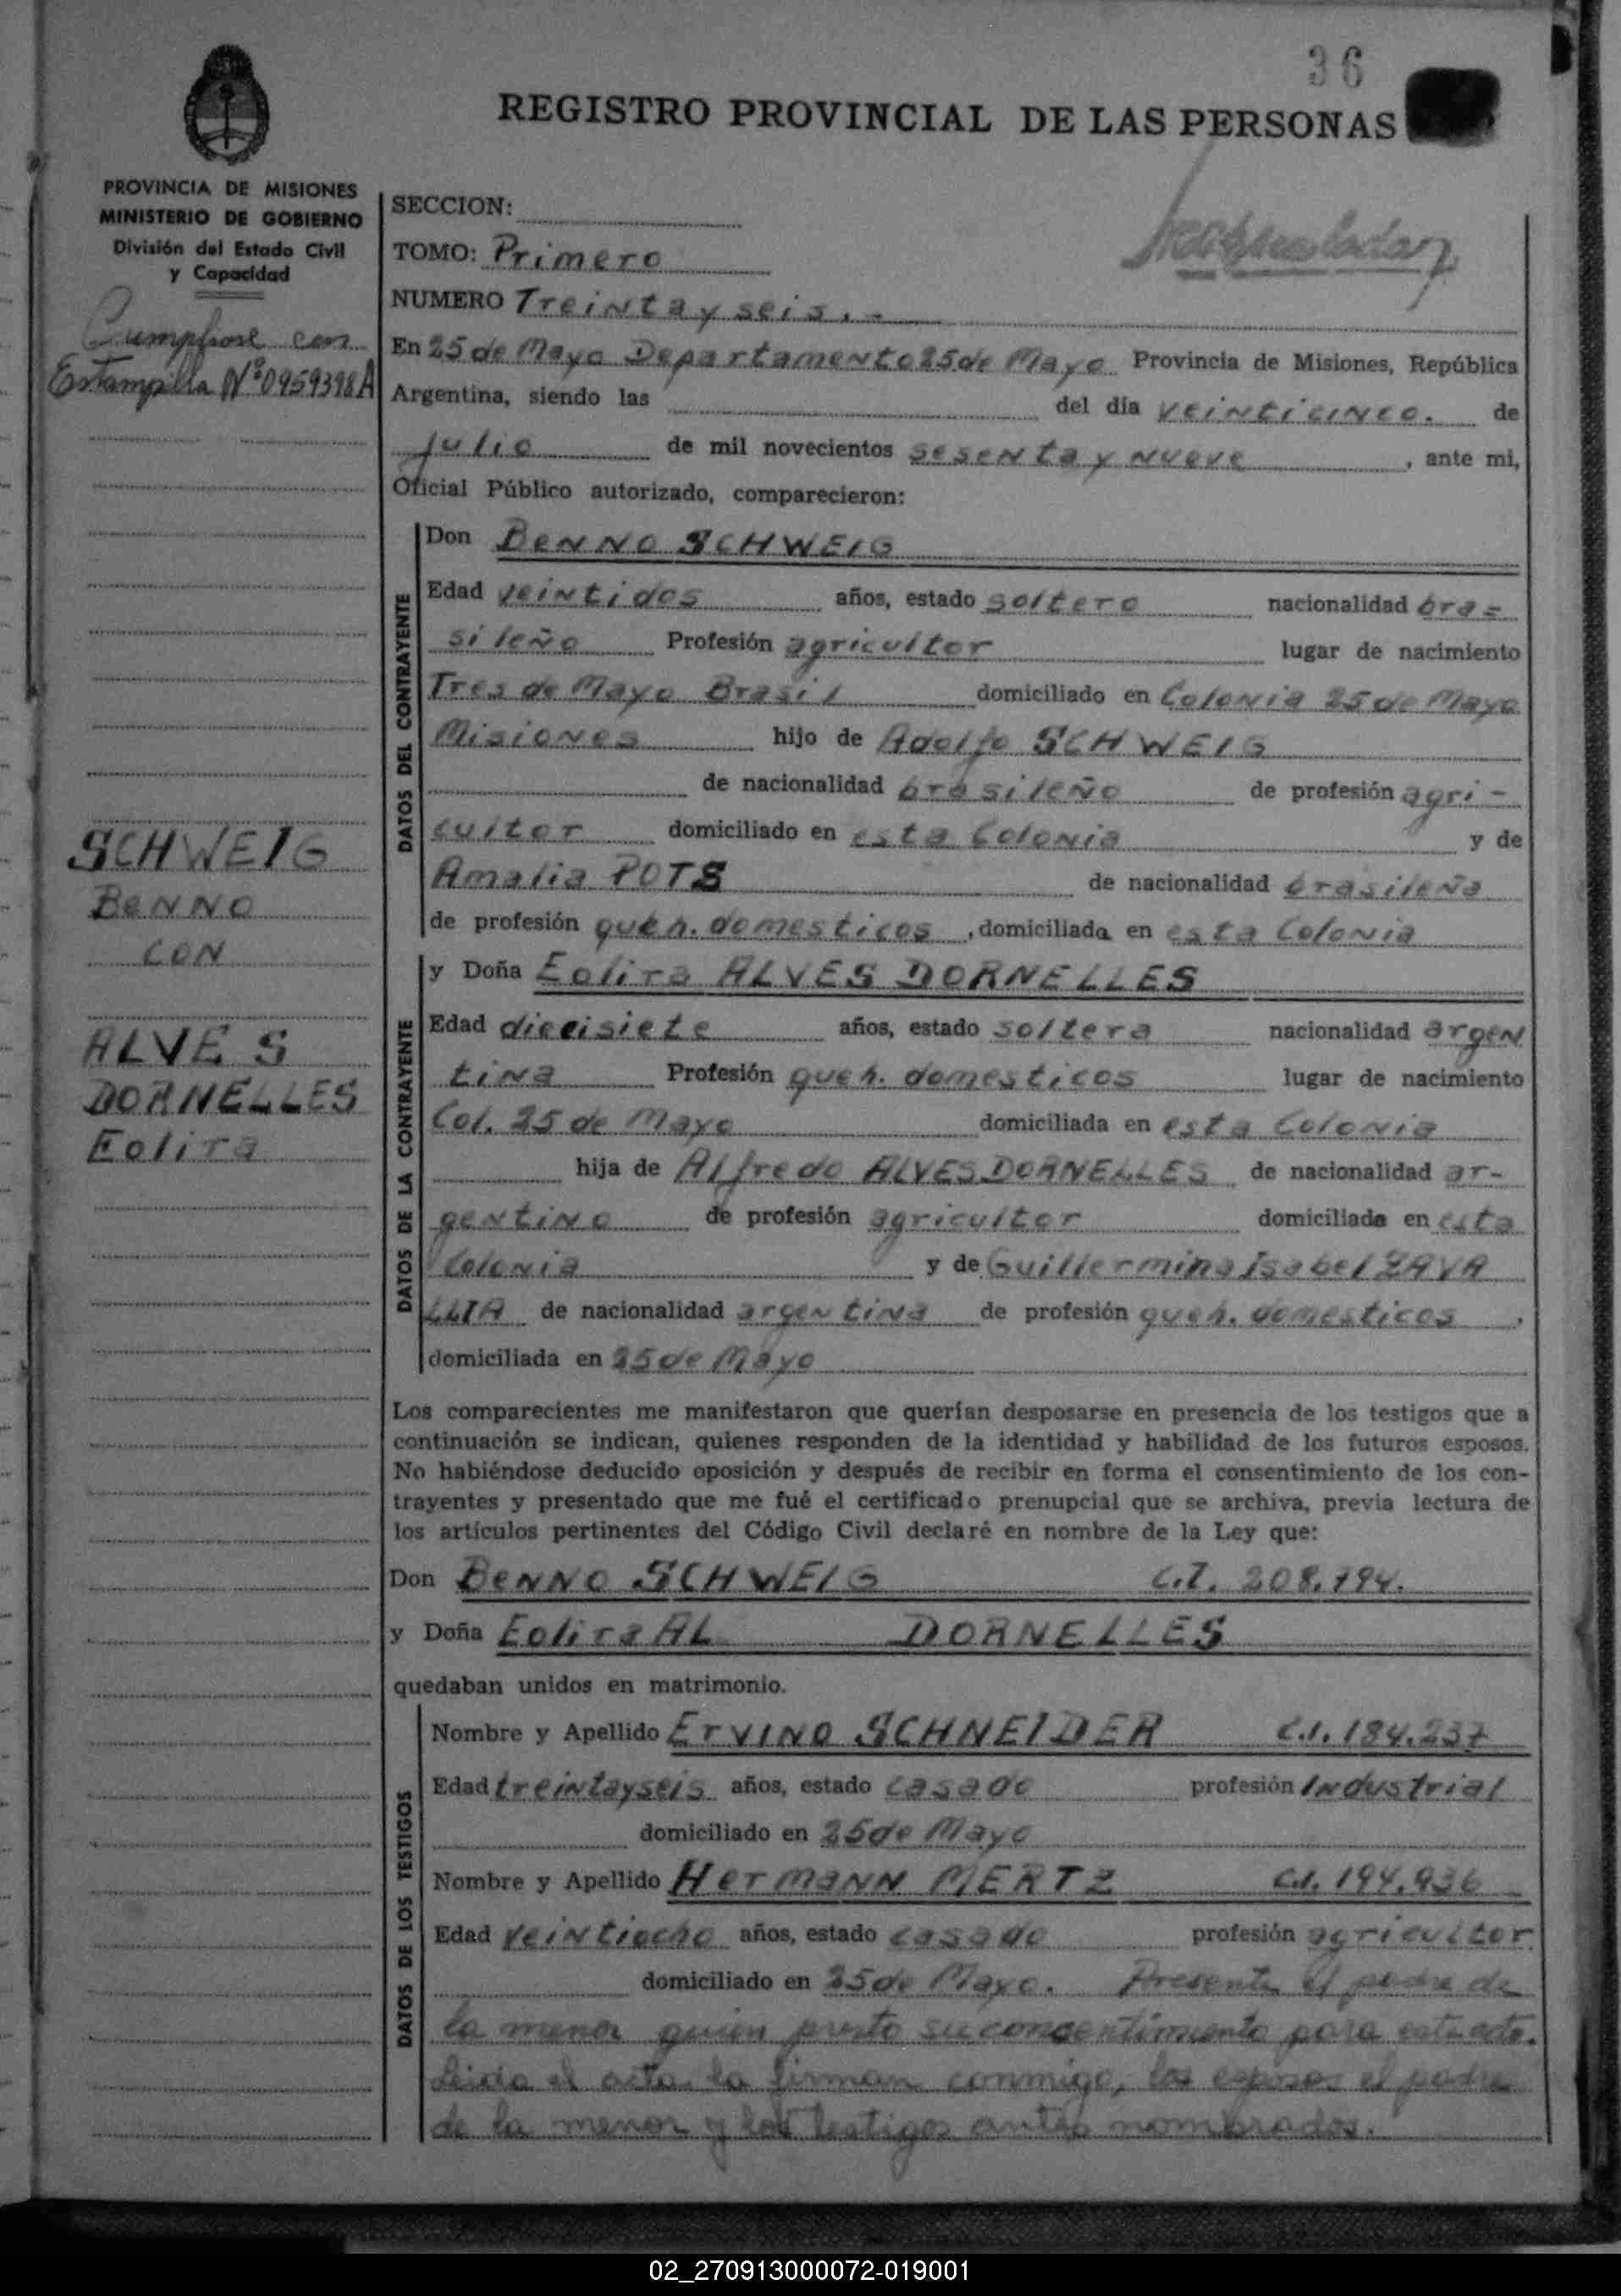 36
REGISTRO PROVINCIAL DE LAS PERSONAS
PROVINCIA DE MISIONES
MINISTERIO DE GOBIERNO
División del Estado Civil
y Capacidad
Estampilla Nº0959398A
SCHWEIG
BENNO
CON
ALVES
DORNELLES
Eolira
SECCION:
TOMO: Primero
NUMERO Treinta y seis.-
En 25 de Mayo Departamento 25 de Mayo Provincia de Misiones, República
Argentina, siendo las del día veinticinco. de
Julio de mil novecientos sesenta y nueve , ante mi,
Oficial Público autorizado, comparecieron:
DATOS DEL CONTRAYENTE
Don BENNO SCHWEIG
Edad veintidos años, estado soltero nacionalidad bra=
sileño Profesión agricultor lugar de nacimiento
Tres de Mayo Brasil domiciliado en Colonia 25 de Mayo
Misiones hijo de Adolfo SCHWEIG
de nacionalidad brasileño de profesión agri-
cultor domiciliado en esta Colonia y de
Amalia POTS de nacionalidad brasileña
de profesión queh. domesticos , domiciliada en esta Colonia
DATOS DE LA CONTRAYENTE
y Doña Eolira ALVES DORNELLES
Edad diecisiete años, estado soltera nacionalidad argen
tina Profesión queh. domesticos lugar de nacimiento
Col. 25 de Mayo domiciliada en esta Colonia
hija de Alfredo ALVES DORNELLES de nacionalidad ar-
gentino de profesión agricultor domiciliada en esta
Colonia y de Guillermina Isabel ZAVA
LLIA de nacionalidad argentina de profesión queh. domesticos ,
domiciliada en 25 de Mayo
Los comparecientes me manifestaron que querían desposarse en presencia de los testigos que a
continuación se indican, quienes responden de la identidad y habilidad de los futuros esposos.
No habiéndose deducido oposición y después de recibir en forma el consentimiento de los con-
trayentes y presentado que me fué el certificado prenupcial que se archiva, previa lectura de
los artículos pertinentes del Código Civil declaré en nombre de la Ley que:
Don BENNO SCHWEIG C.I. 208.794.
y Doña Eolira AL DORNELLES
quedaban unidos en matrimonio.
DATOS DE LOS TESTIGOS
Nombre y Apellido Ervino SCHNEIDER C.I. 184.237
Edad treintayseis años, estado casado profesión Industrial
domiciliado en 25 de Mayo
Nombre y Apellido Hermann MERTZ C.I. 194.936
Edad veintiocho años, estado casado profesión agricultor
domiciliado en 25 de Mayo. Presente el padre de
la menor quien presto su consentimiento para este acto.
Leida el acta la firman conmigo, los esposos el padre
de la menor y los testigos antes nombrados.
02_270913000072-019001